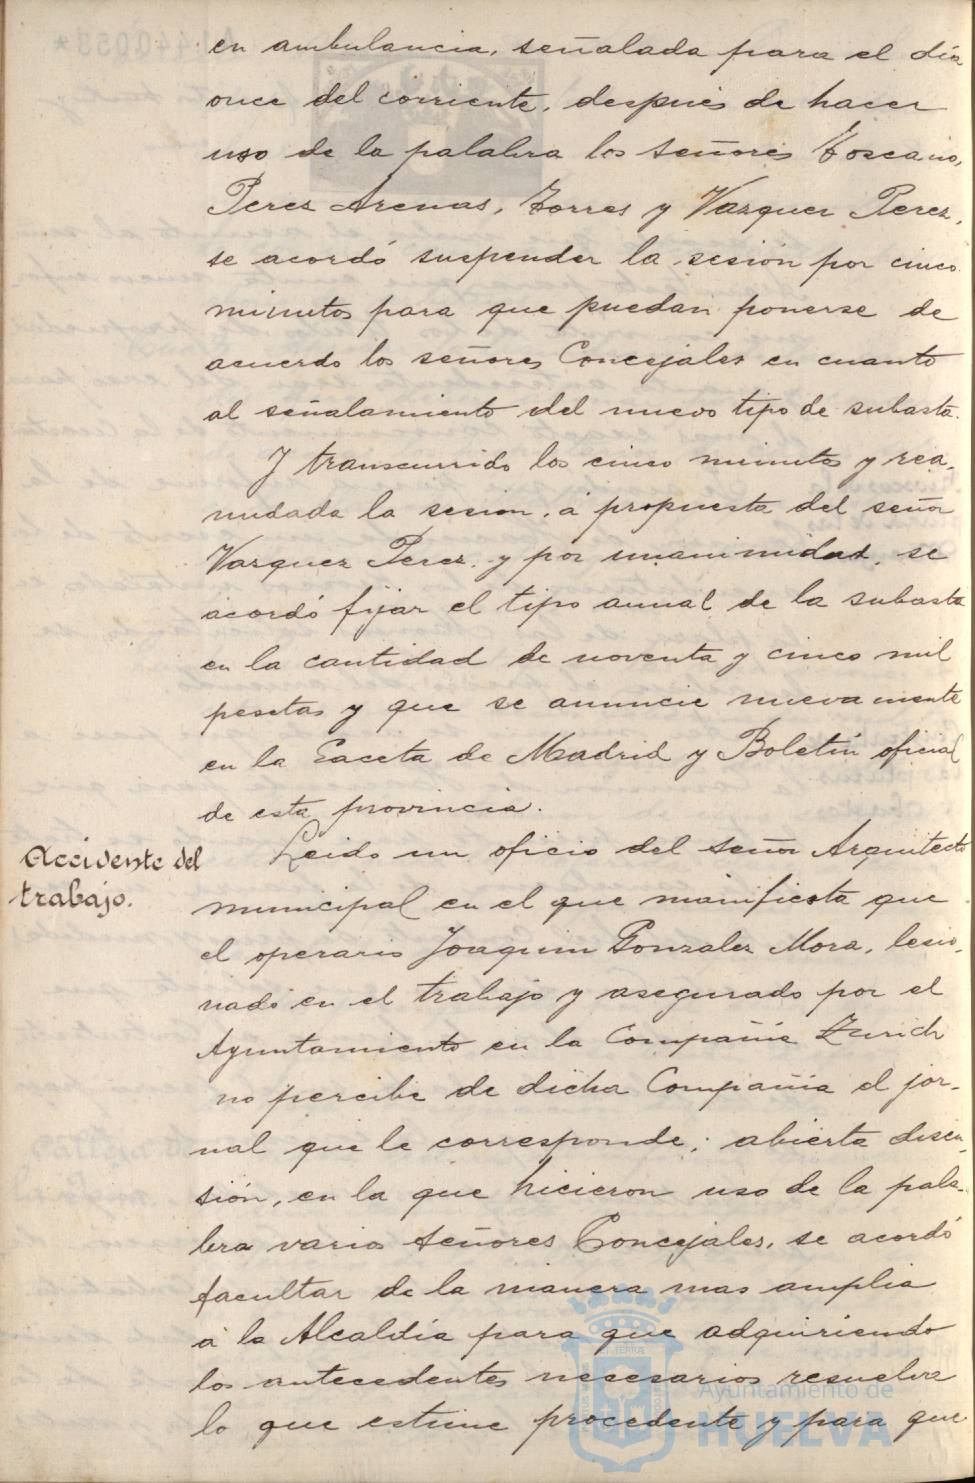 en ambulancia, señalada para el día
once del corriente, después de hacer
uso de la palabra los señores Toscano,
Perez Arenas, Torres y Vazquez Perez,
se acordó suspender la sesión por cinco
minutos para que puedan ponerse de
acuerdo los señores Concejales en cuanto
al señalamiento del nuevo tipo de subasta.
Y transcurrido los cinco minutos y rea-
nudada la sesion, á propuesta del señor
Vazquez Perez, y por unanimidad, se
acordó fijar el tipo anual de la subasta
en la cantidad de noventa y cinco mil
pesetas y que se anuncie nuevamente
en la Gaceta de Madrid y Boletín oficial
de esta provincia.
Accidente del
trabajo.
Leido un oficio del señor Arquitecto
municipal en el que manifiesta que
el operario Joaquin Gonzalez Mora, lesio-
nado en el trabajo y asegurado por el
Ayuntamiento en la Compañia Zurich
no percibe de dicha Compañia el jor-
nal que le corresponde; abierta discu-
sión, en la que hicieron uso de la pala-
bra varios señores Concejales, se acordó
facultar de la manera mas amplia
á la Alcaldía para que adquiriendo
los antecedentes necesarios resuelva
lo que estime procedente y para que
Ayuntamiento de
HUELVA